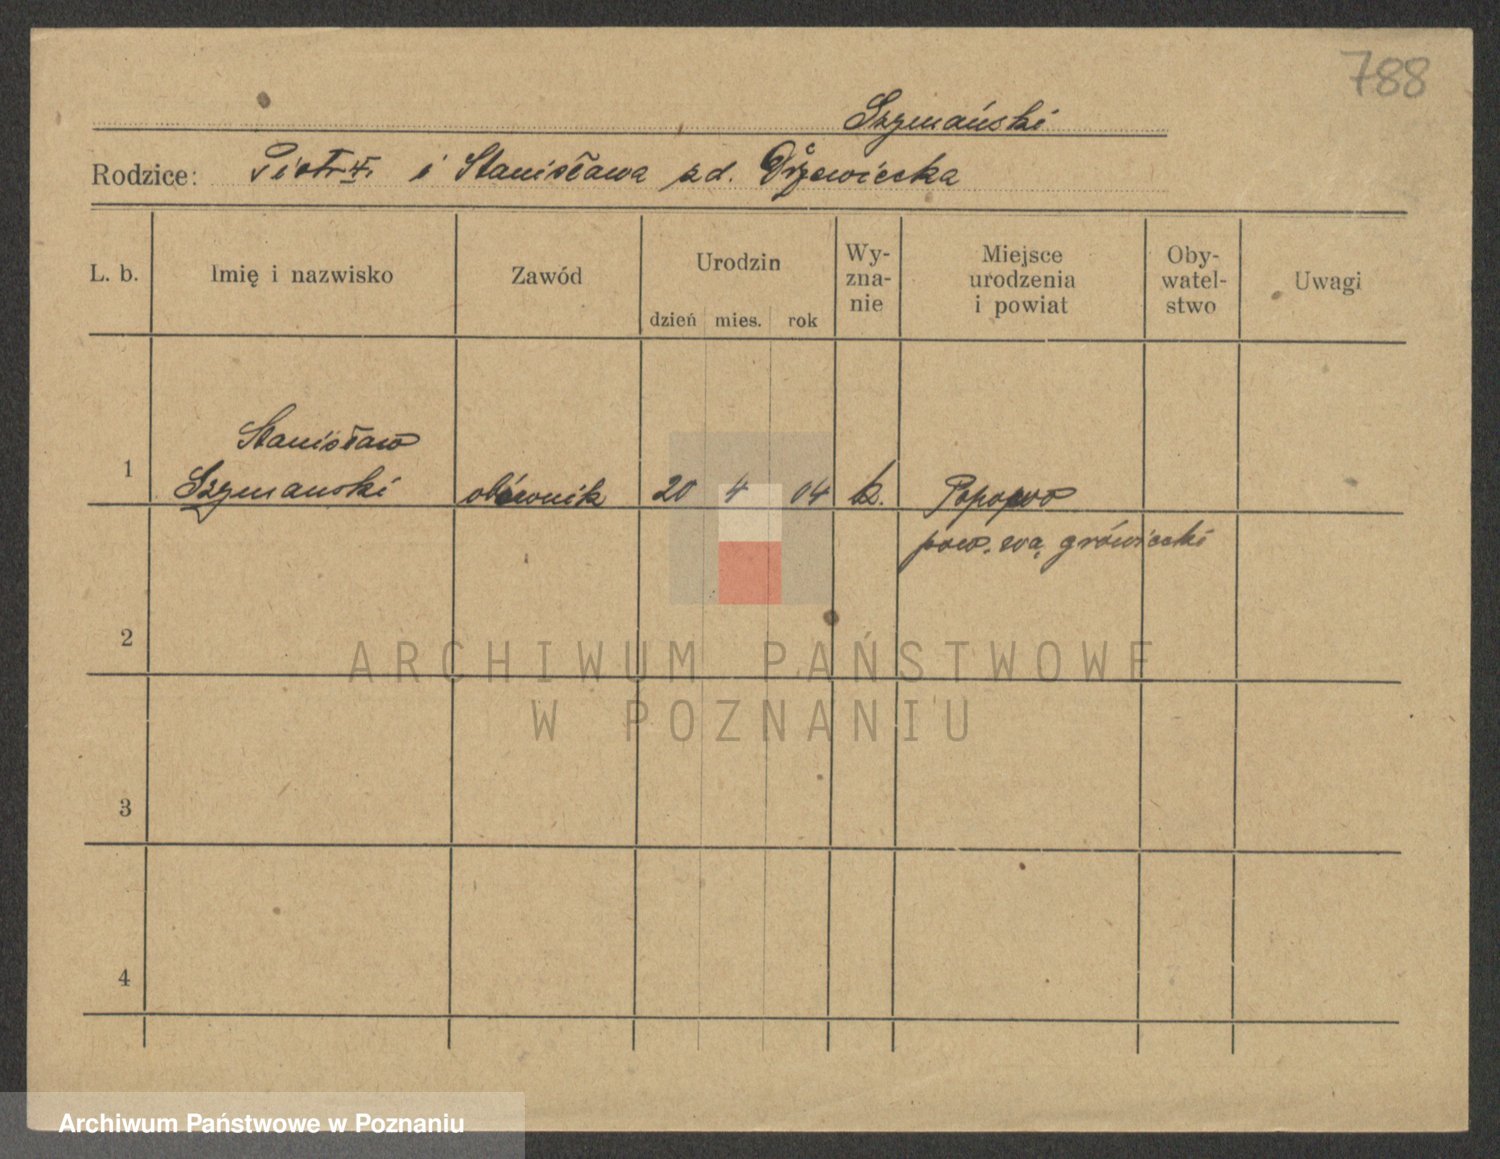 788
Szymański
Rodzice: Piotr i Stanisława zd. Drzewiecka
L. b.
Imię i nazwisko
Zawód
Urodzin
dzień mies. rok
Wy-
zna-
nie
Miejsce
urodzenia
i powiat
Oby-
watel-
stwo
Uwagi
Stanisław
1 Szymanski 20 4 04 k. Popowo
pow. wągrówiecki
2
3
4
ARCHIWUM PAŃSTWOWE
W POZNANIU
Archiwum Państwowe w Poznaniu